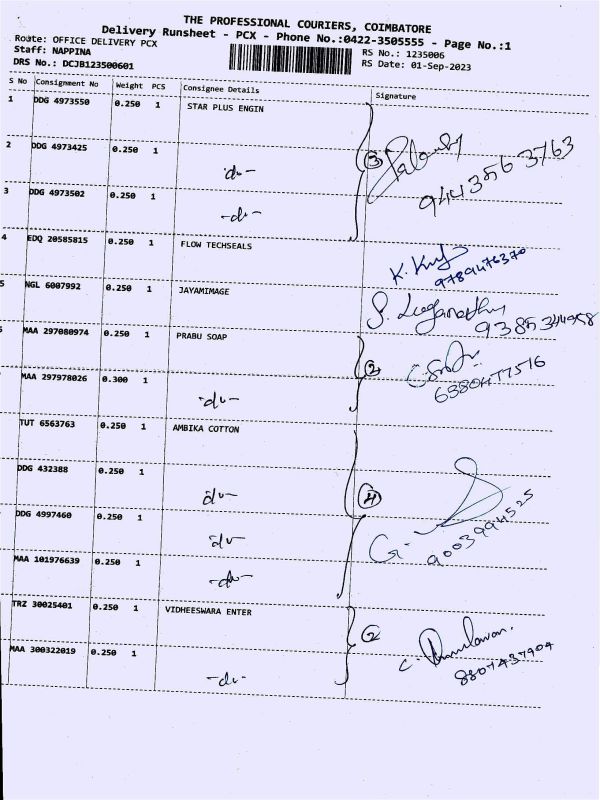 THE PROFESSIONAL COURIERS, COIMBATORE
Delivery Runsheet - PCX - Phone No.:0422-3505555 - Page No.:1
Route: OFFICE DELIVERY PCX
RS No.: 1235006
Staff: NAPPINA
RS Date: 01-Sep-2023
DRS No.: DCJB123500601
S No Consignment No Weight PCS Consignee Details Signature
1 DDG 4973550 0.250 1 STAR PLUS ENGIN
2 DDG 4973425 0.250 1 -do-
③ 9443563763
3 DDG 4973502 0.250 1 -do-
4 EDQ 20585815 0.250 1 FLOW TECHSEALS
9789476370
5 NGL 6007992 0.250 1 JAYAMIMAGE
9385344958
MAA 297080974 0.250 1 PRABU SOAP
②
MAA 297978026 0.300 1 -do-
6380477516
TUT 6563763 0.250 1 AMBIKA COTTON
DDG 432388 0.250 1 -do-
④
DDG 4997460 0.250 1 -do-
9003994525
MAA 101976639 0.250 1 -do-
TRZ 30025401 0.250 1 VIDHEESWARA ENTER
②
MAA 300322019 0.250 1 -do-
8807437904